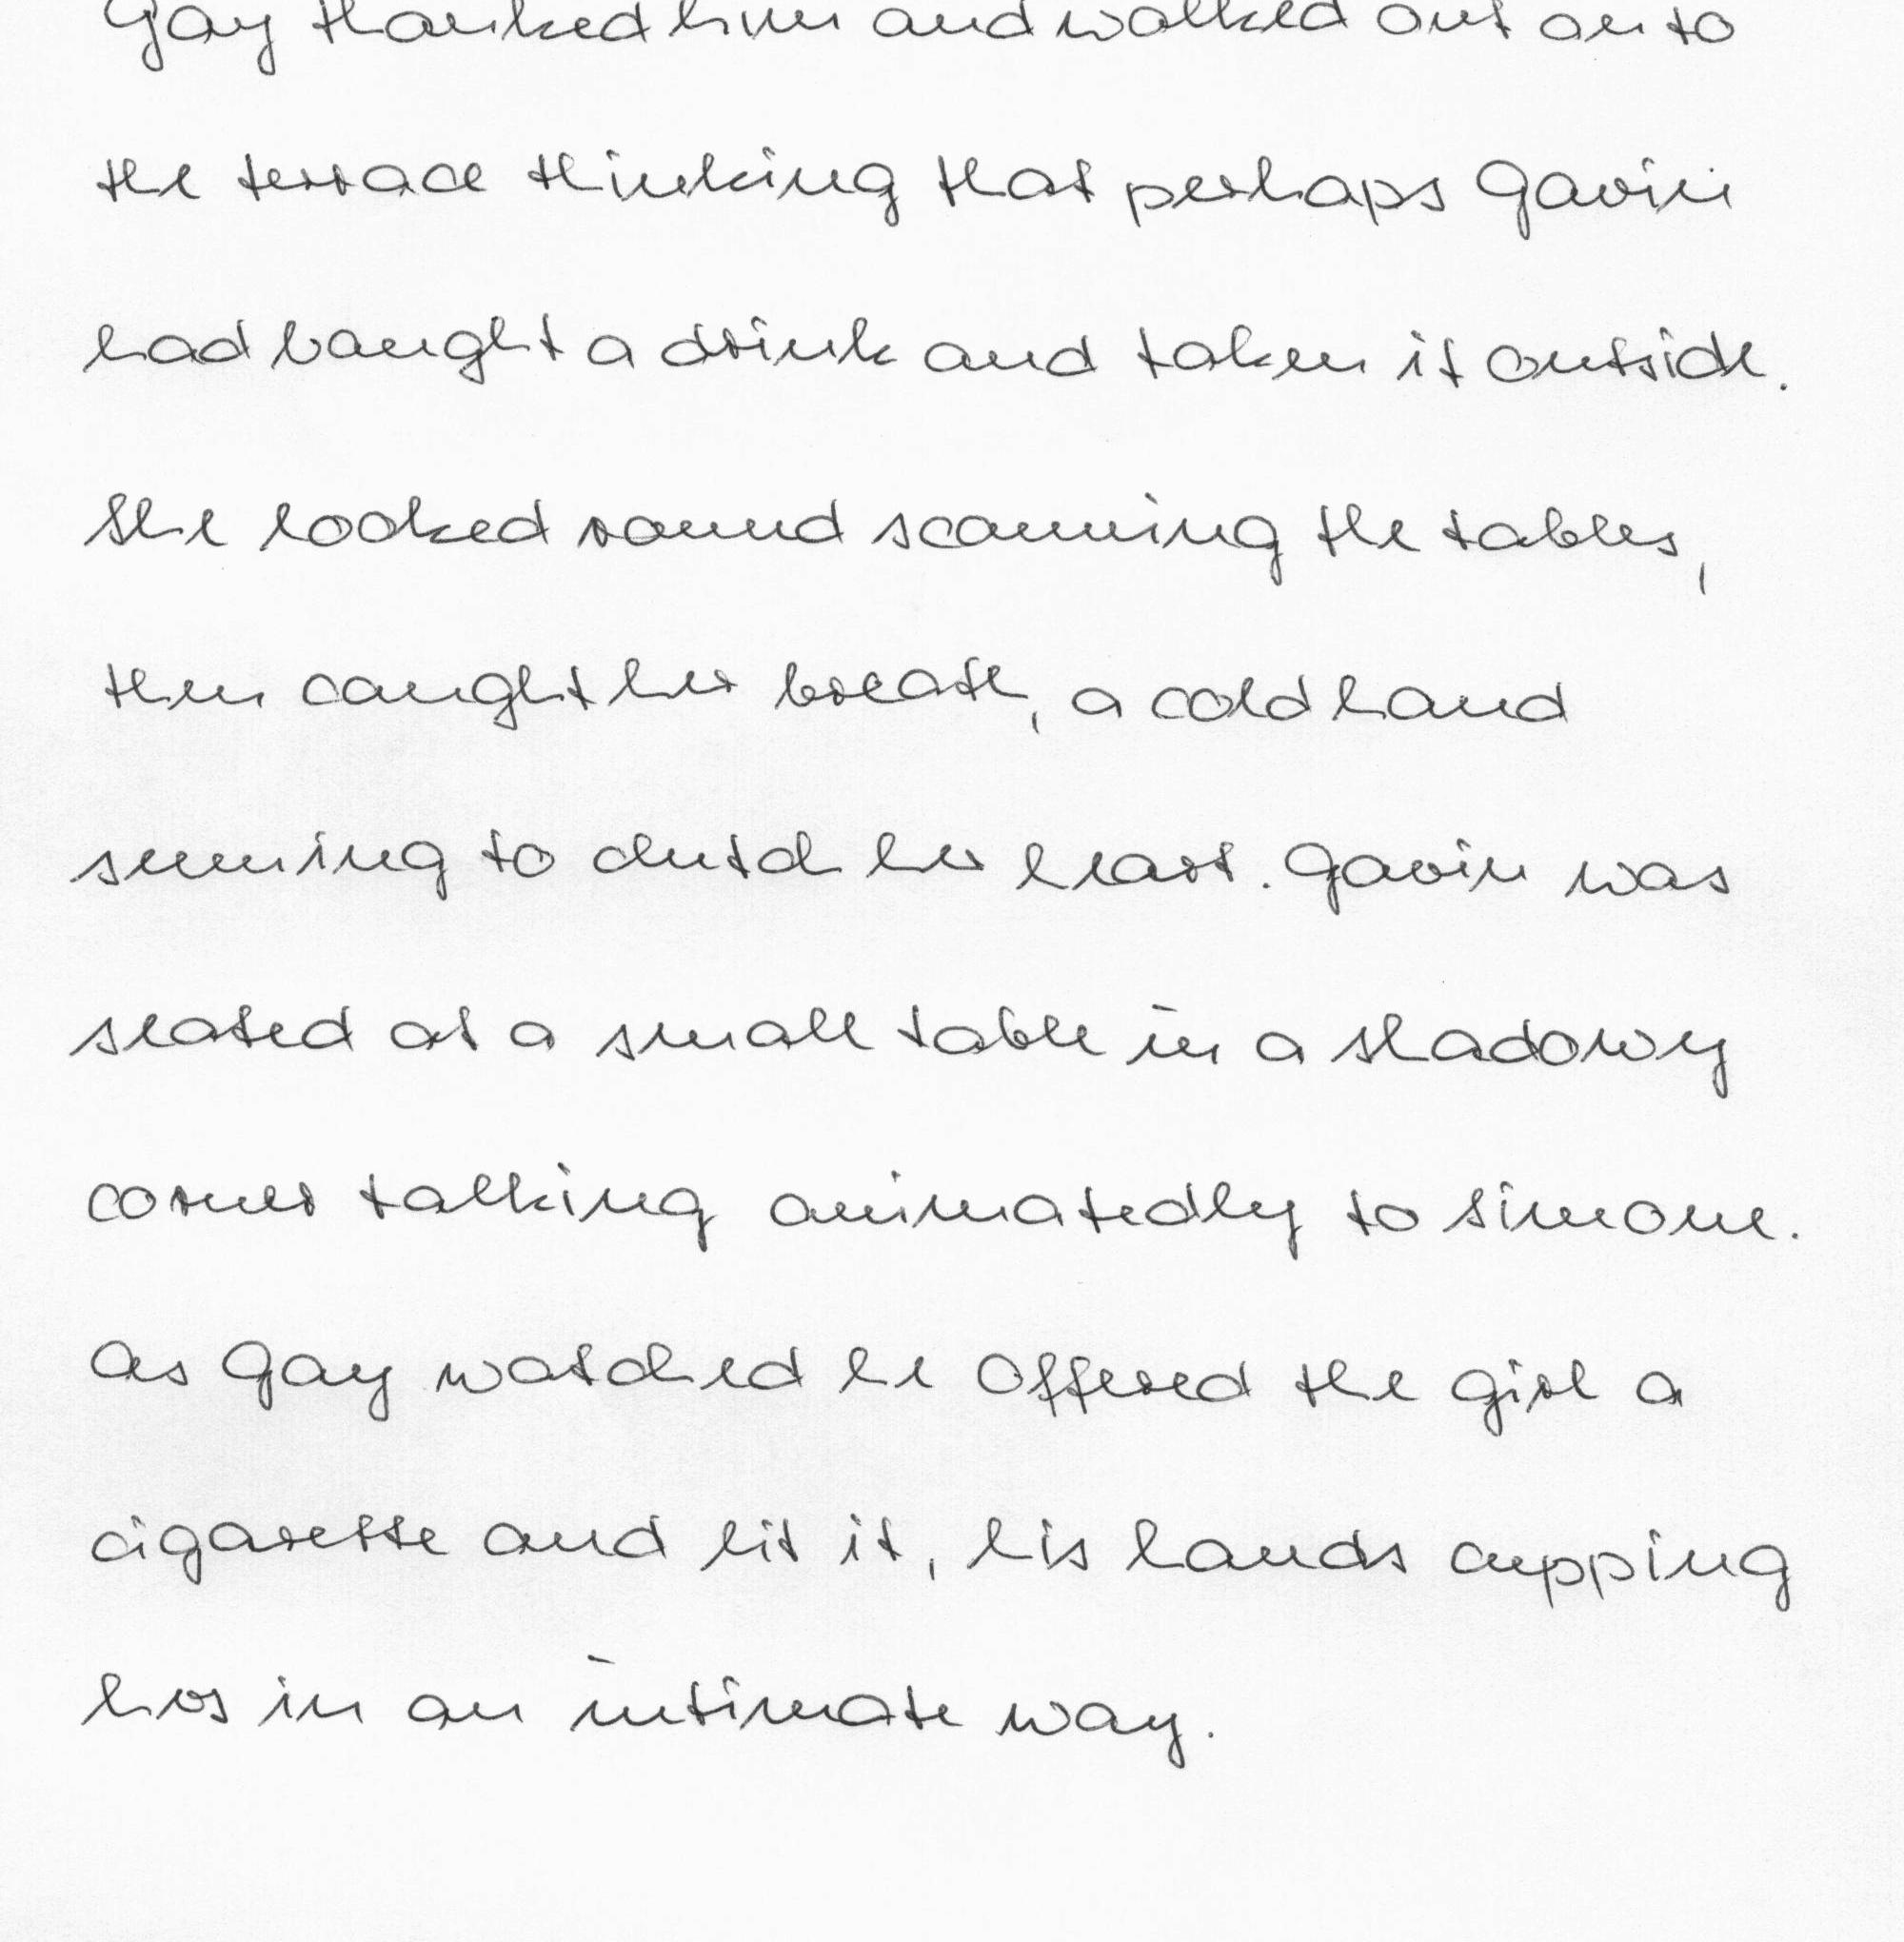 Gay thanked him and walked out on to
the terrace thinking that perhaps Gavin
had bought a drink and taken it outside.
She looked round scanning the tables,
then caught her breath, a cold hand
seeming to clutch her heart. Gavin was
seated at a small table in a shadowy
corner talking animatedly to Simone.
As Gay watched he offered the girl a
cigarette and lit it, his hands cupping
hers in an intimate way.